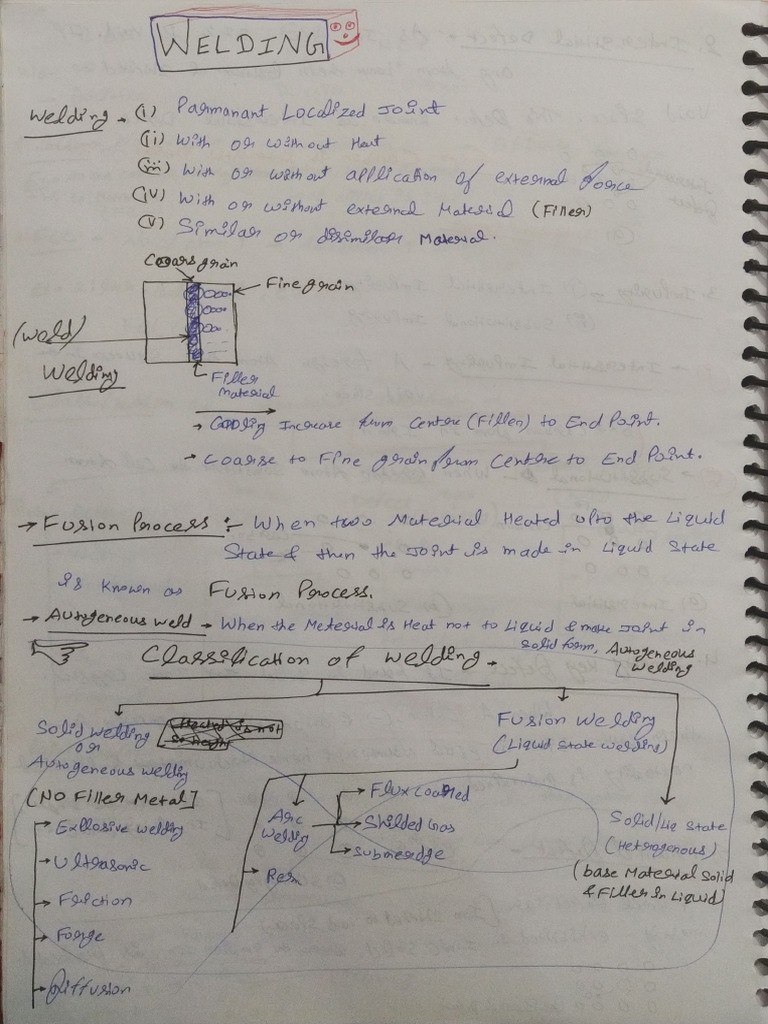 WELDING
Welding → (i) Parmanant Localized Joint
(ii) With or without Heat
(iii) With or without application of external force
(iv) With or without external Material (Filler)
(v) Similar or dissimilar Material.
Coarsgrain
Fine grain
(weld)
Welding
Filler
Material
→ Cooling Increase from Centre (Filler) to End Point.
→ Coarse to Fine grain from Centre to End Point.
→ Fusion Process :- When two Material Heated upto the Liquid
State & then the Joint is made in Liquid State
is known as Fusion Process.
→ Autogeneous weld → When the Meterial is Heat not to Liquid & make Joint in
solid form, Autogeneous
Welding
Classification of welding.
Solid welding
or
Autogeneous welding
[No Filler Metal]
Explosive welding
Ultrasonic
Friction
Forge
Diffusion
Fusion Welding
(Liquid State welding)
Arc
welding
Flux Coarted
Shilded Gas
Submeredge
Solid/Liq State
(Heterogenous)
(base Material Solid
& Filler in Liquid)